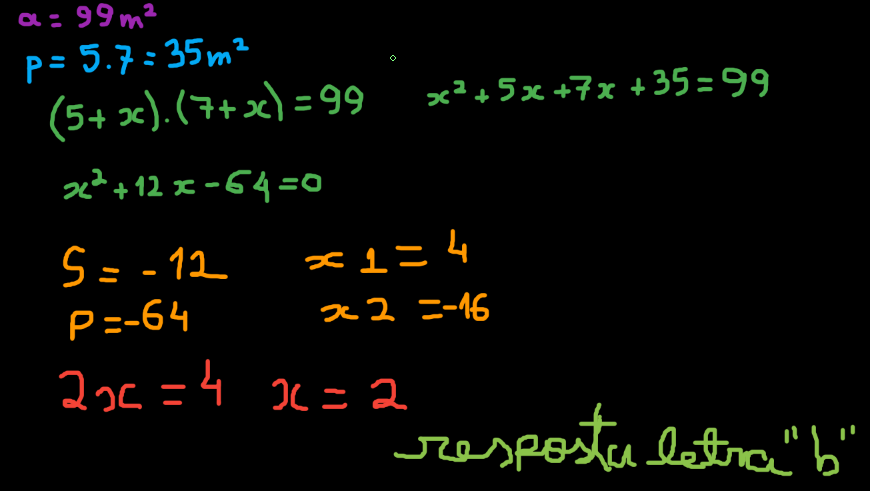 a = 99m²
p = 5.7 = 35m²
(5+x).(7+x) = 99 x²+5x+7x+35=99
x²+12x-64=0
S = -12 x1 = 4
P = -64 x2 = -16
2x = 4 x = 2
resposta letra "b"